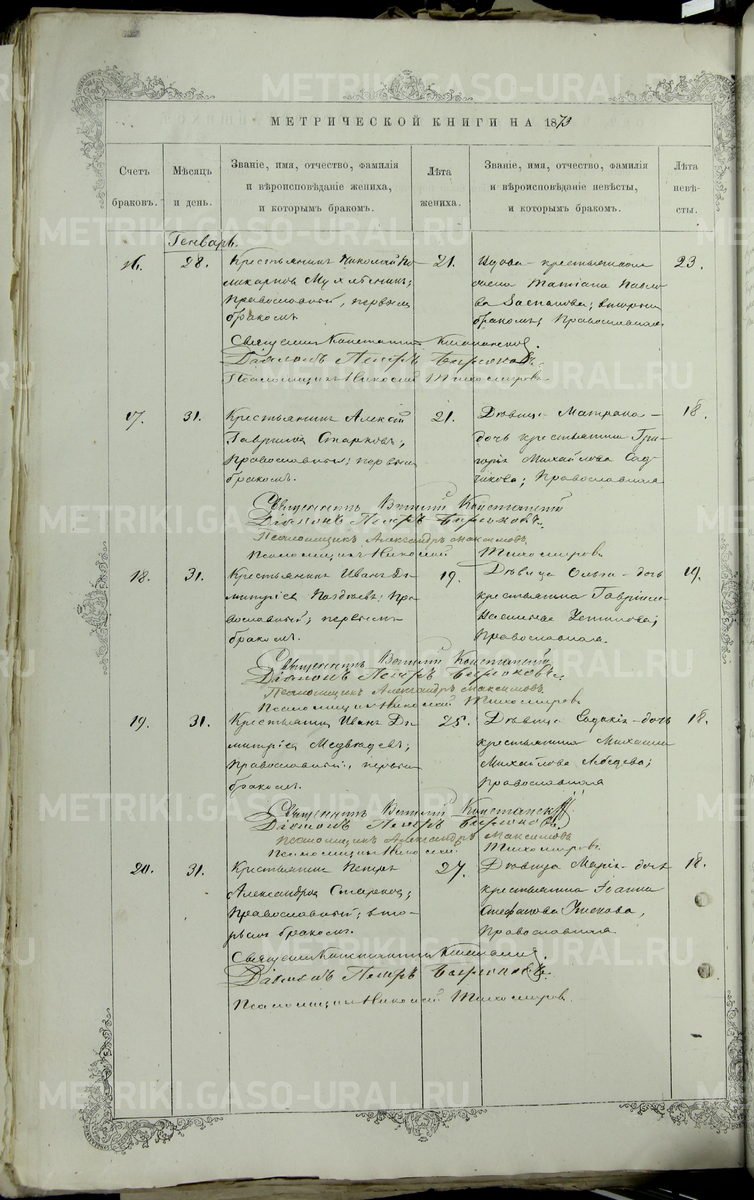 METRIKI.GASO-URAL.RU
МЕТРИЧЕСКОЙ КНИГИ НА 1873
Счетъ браковъ.
Мѣсяцъ и день.
Званіе, имя, отчество, фамилія
и вѣроисповѣданіе жениха,
и которымъ бракомъ.
Лѣта жениха.
Званіе, имя, отчество, фамилія
и вѣроисповѣданіе невѣсты,
и которымъ бракомъ.
Лѣта невѣсты.
Генварь.
16. 28.
Крестьянинъ Николай По
ликарповъ
Православный, первымъ
бракомъ
21.
Вдова крестьянская
жена Татіана Павло
ва вторымъ
бракомъ; Православная
23.
Священникъ
Діаконъ Петръ
Псаломщикъ Николай Тихомировъ
17. 31.
Крестьянинъ Алексѣй
Гавриловъ Старковъ;
Православный; первымъ
бракомъ.
21.
Дѣвица Матрона
дочь крестьянина Гри
горія Михайлова
Православная
18.
Священникъ
Діаконъ Петръ
Псаломщикъ Александръ Максимовъ
Псаломщикъ Николай Тихомировъ
18. 31.
Крестьянинъ Иванъ Ди
митріевъ Пра
вославный; первымъ
бракомъ.
19.
Дѣвица Ольга дочь
крестьянина Гавріила
Васильева
Православная.
19.
Священникъ
Діаконъ Петръ
Псаломщикъ Александръ Максимовъ
Псаломщикъ Николай Тихомировъ
19. 31.
Крестьянинъ Иванъ Ди
митріевъ Медвѣдевъ;
Православный, первымъ
бракомъ.
25.
Дѣвица дочь
крестьянина Михаила
Михайлова Лебедева;
Православная
18.
Священникъ
Діаконъ Петръ
Псаломщикъ Александръ Максимовъ
Псаломщикъ Николай Тихомировъ
20. 31.
Крестьянинъ Петръ
Александровъ
Православный; вто
рымъ бракомъ.
27.
Дѣвица Марія дочь
крестьянина Іоанна
Стефанова
Православная
18.
Священникъ
Діаконъ Петръ
Псаломщикъ Николай Тихомировъ